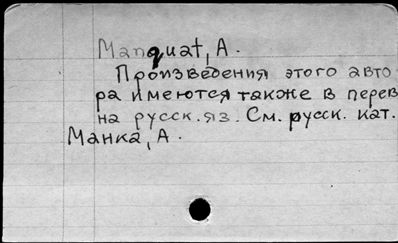 Manquat, A.
Произведения этого авто
ра имеются также в перев
на русск. яз. См. русск. кат.
Манка, А.